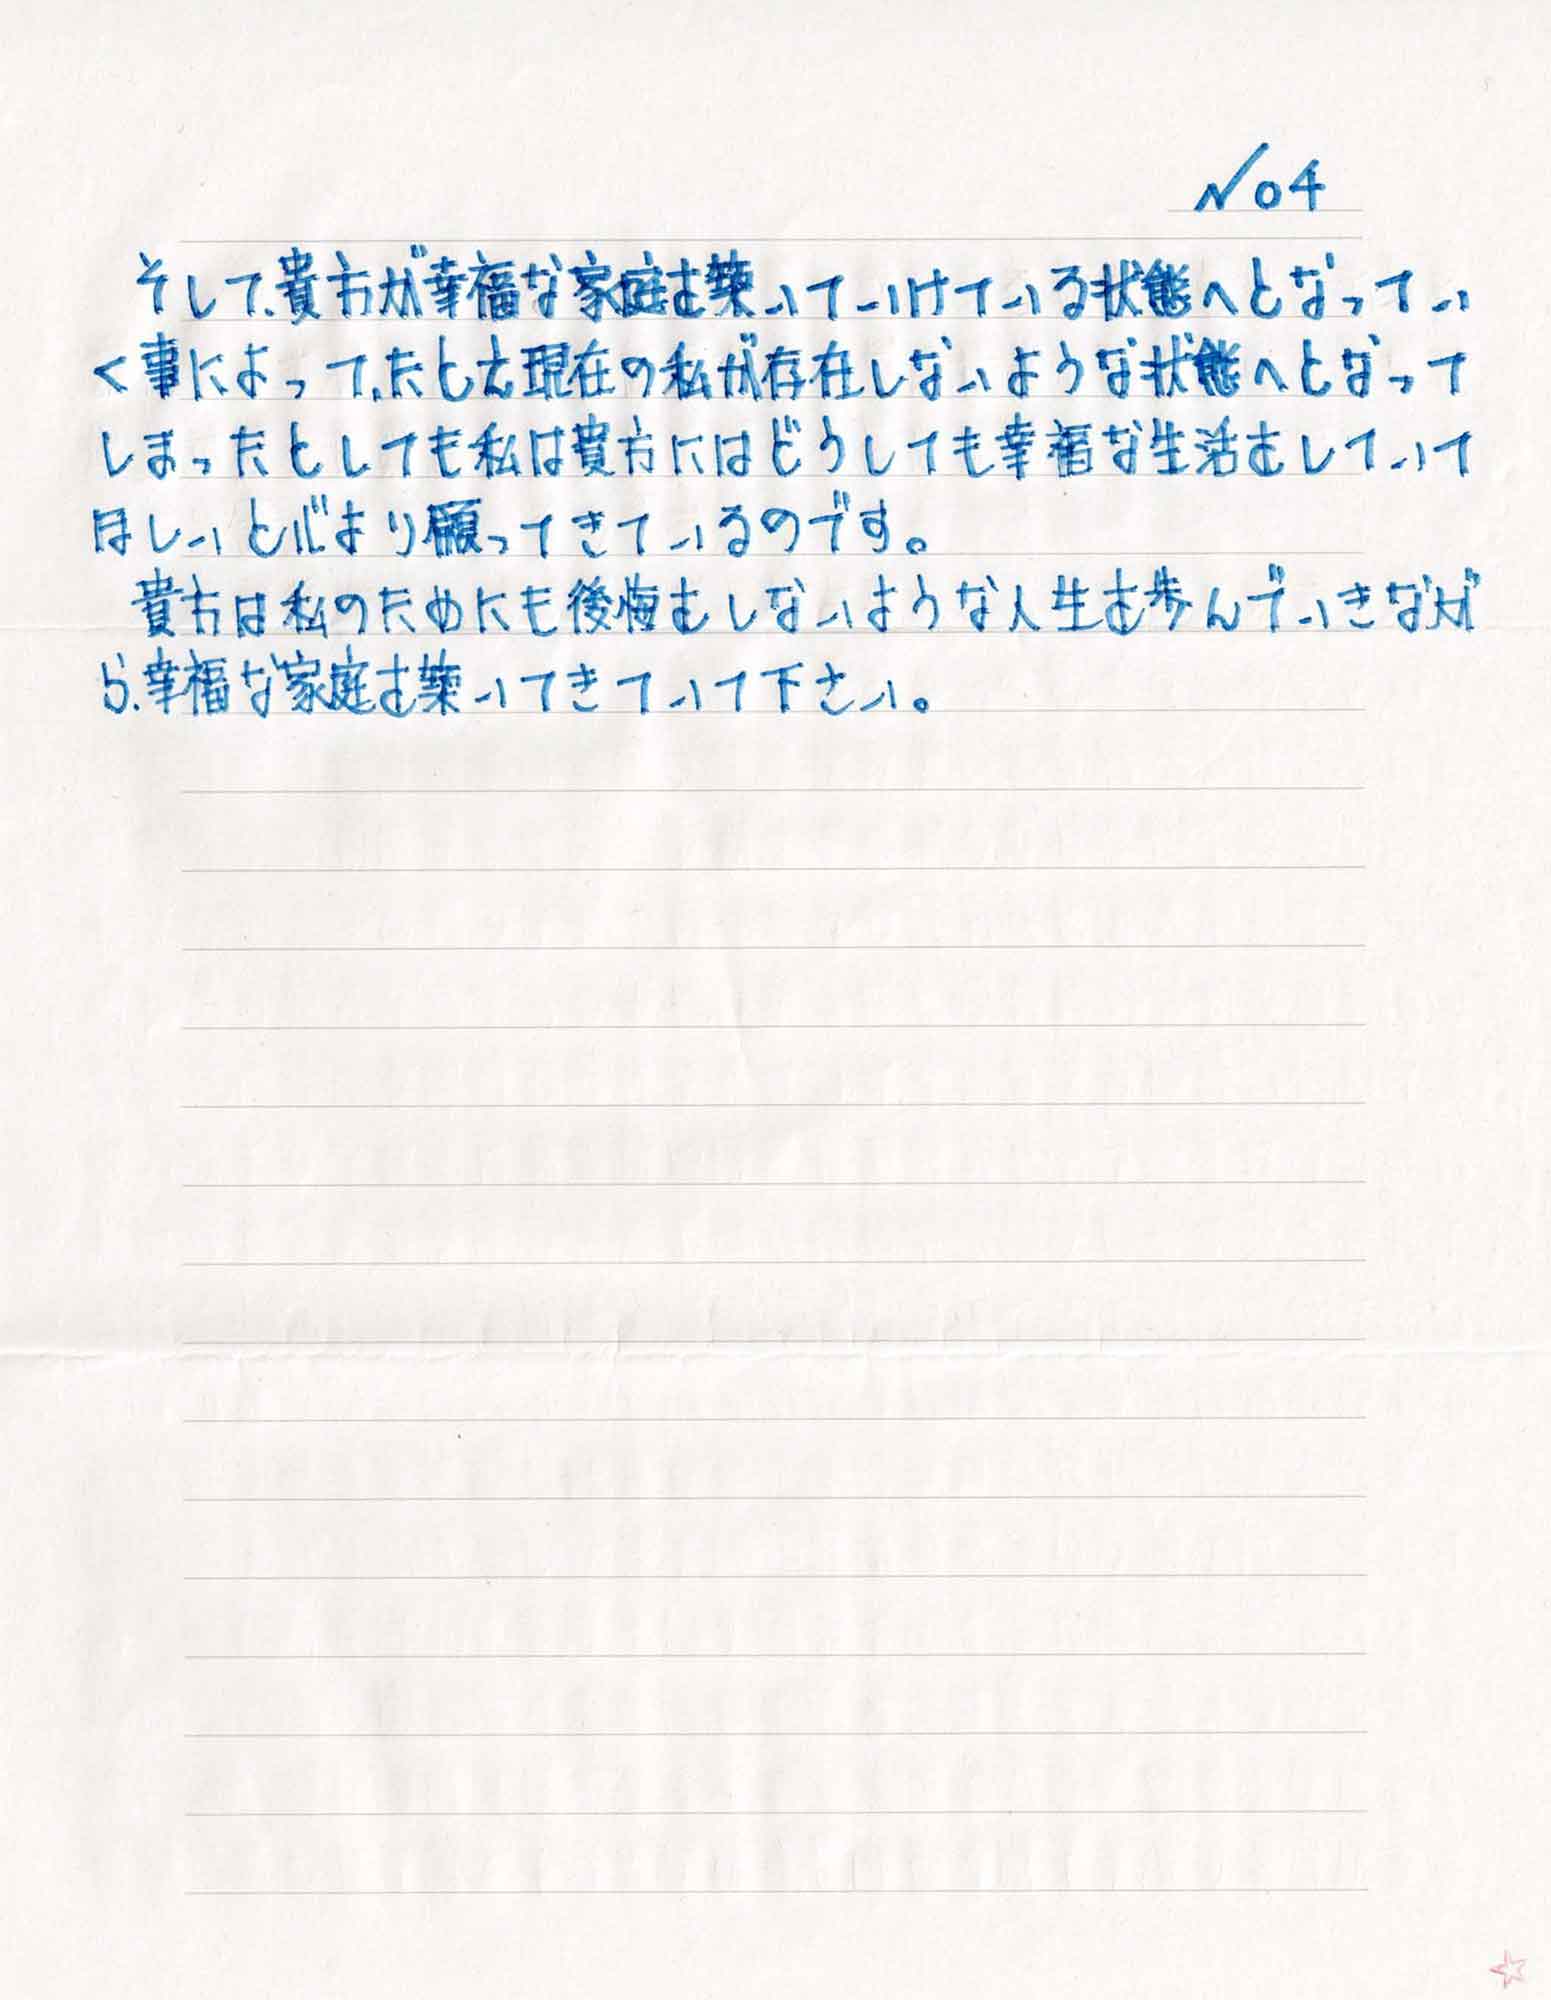 No4
そして、貴方が幸福な家庭を築いていけている状態へとなってい
く事によって、たとえ現在の私が存在しないような状態へとなって
しまったとしても私は貴方にはどうしても幸福な生活をしていて
ほしいと心より願ってきているのです。
貴方は私のためにも後悔をしないような人生を歩んでいきなが
ら、幸福な家庭を築いてきていて下さい。